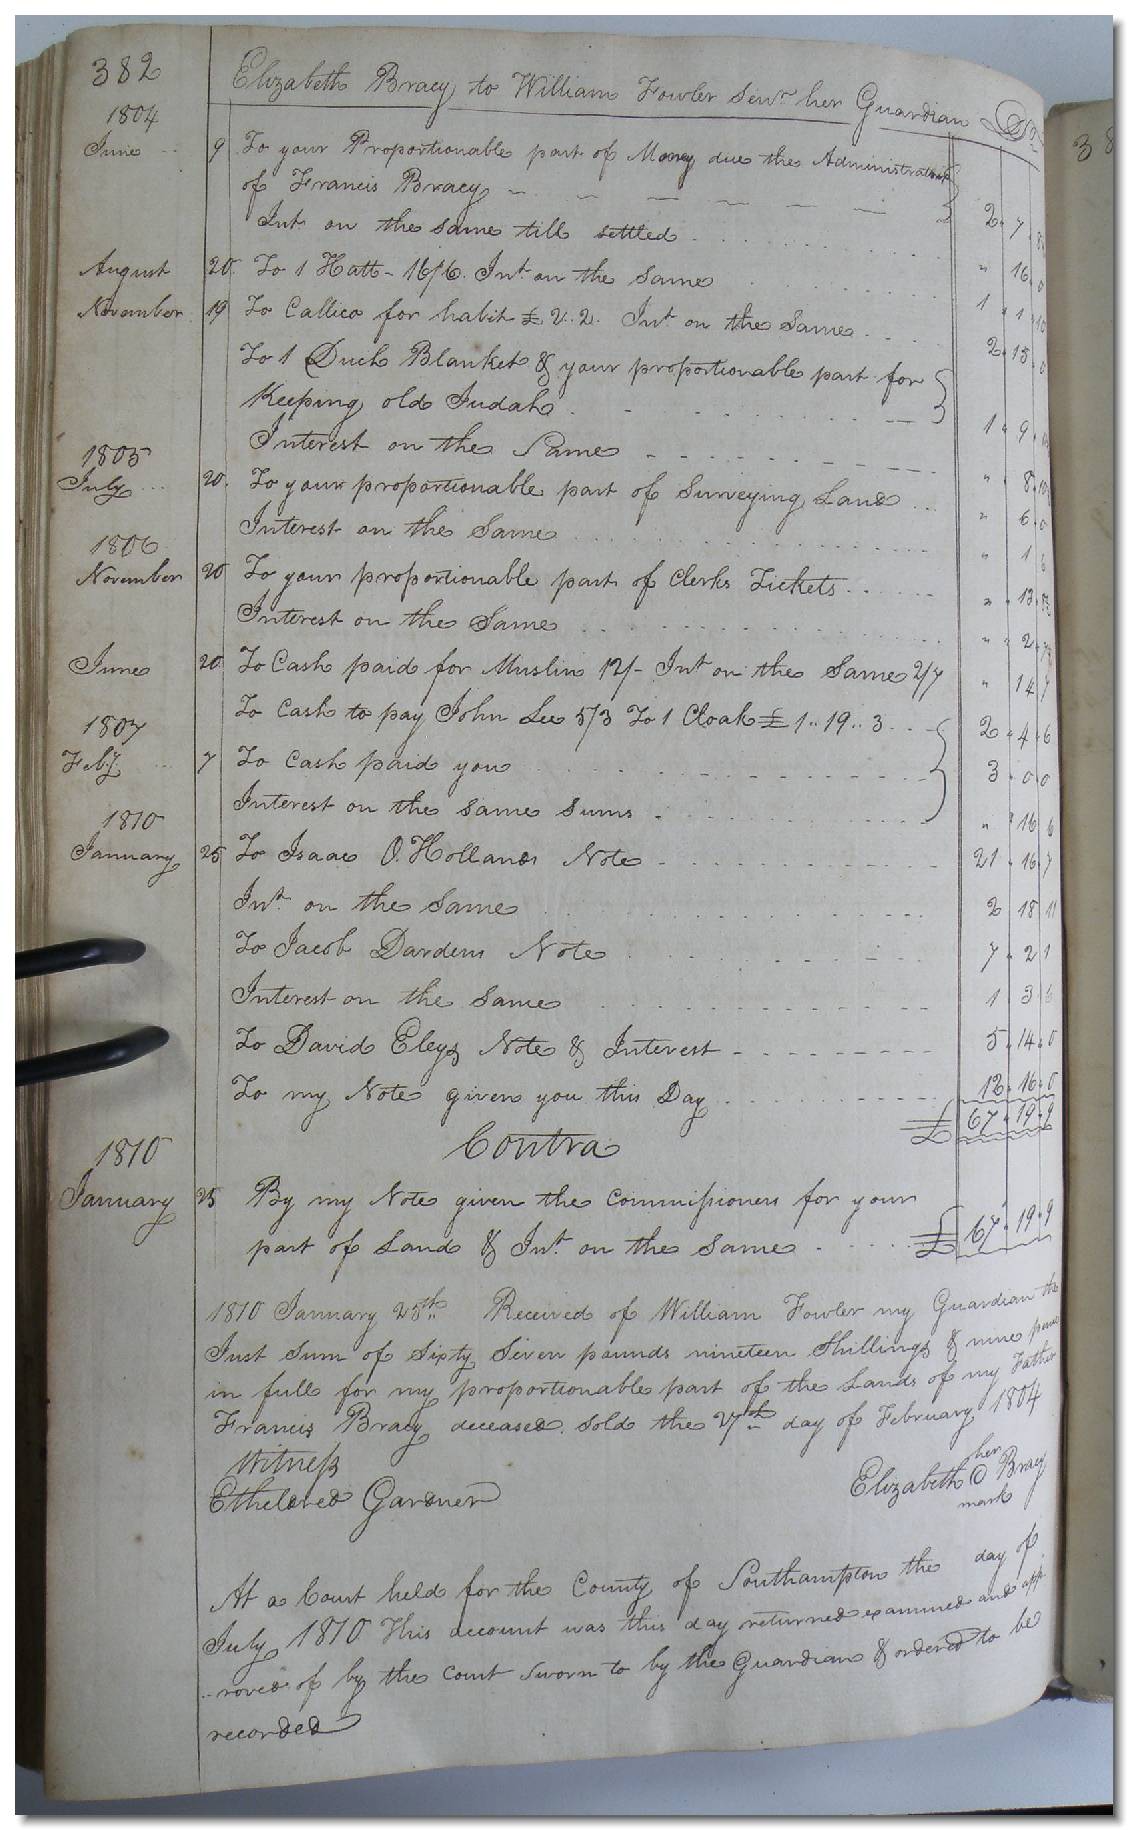 382
Elizabeth Bracy to William Fowler Senr. her Guardian Dr.
1804
June 9 To your Proportionable part of Money due the Administrator
of Francis Bracy 2 7
Int. on the same till settled " 16 0
August 20 To 1 Hatt - 16/6. Int. on the Same 1 1 10
November 19 To Callico for habit £ 2.. 2. Int. on the Same 2 13 0
To 1 Duch Blanket & your proportionable part for
Keeping old Judah 1 9
Interest on the Same " 8
1805
July 20. To your proportionable part of Surveying Land " 6 0
Interest on the Same " 1 6
1806
November 20 To your proportionable part of Clerks Tickets " 13
Interest on the Same " 2
June 20 To Cash paid for Muslin 12/- Int on the Same 2/7 " 14 7
To Cash to pay John Lee 5/3 To 1 Cloak £ 1.. 19.. 3 2 4 6
1807
Feby. 7 To Cash paid you 3 0 0
Interest on the Same Sums " 16 6
1810
January 25 To Isaac O. Hollands Note 21 16 7
Int. on the Same 2 18 11
To Jacob Dardens Note 7 2 1
Interest on the Same 1 3 6
To David Eleys Note & Interest 5 14 0
To my Note given you this Day 12 16 0
£ 67 19 9
Contra
1810
January 25 By my Note given the Commissioners for your
part of Land & Int. on the Same £ 67 19 9
1810 January 25th Received of William Fowler my Guardian the
Just Sum of Sixty Seven pounds nineteen Shillings & nine pence
in full for my proportionable part of the Lands of my Father
Francis Bracy deceased. Sold the 27th day of February 1804
Witness her
Etheldred Gardner Elizabeth O Bracy
mark
At a Court held for the County of Southampton the day of
July 1810 This account was this day returned examined and app
-roved of by the Court Sworn to by the Guardian & ordered to be
recorded
38